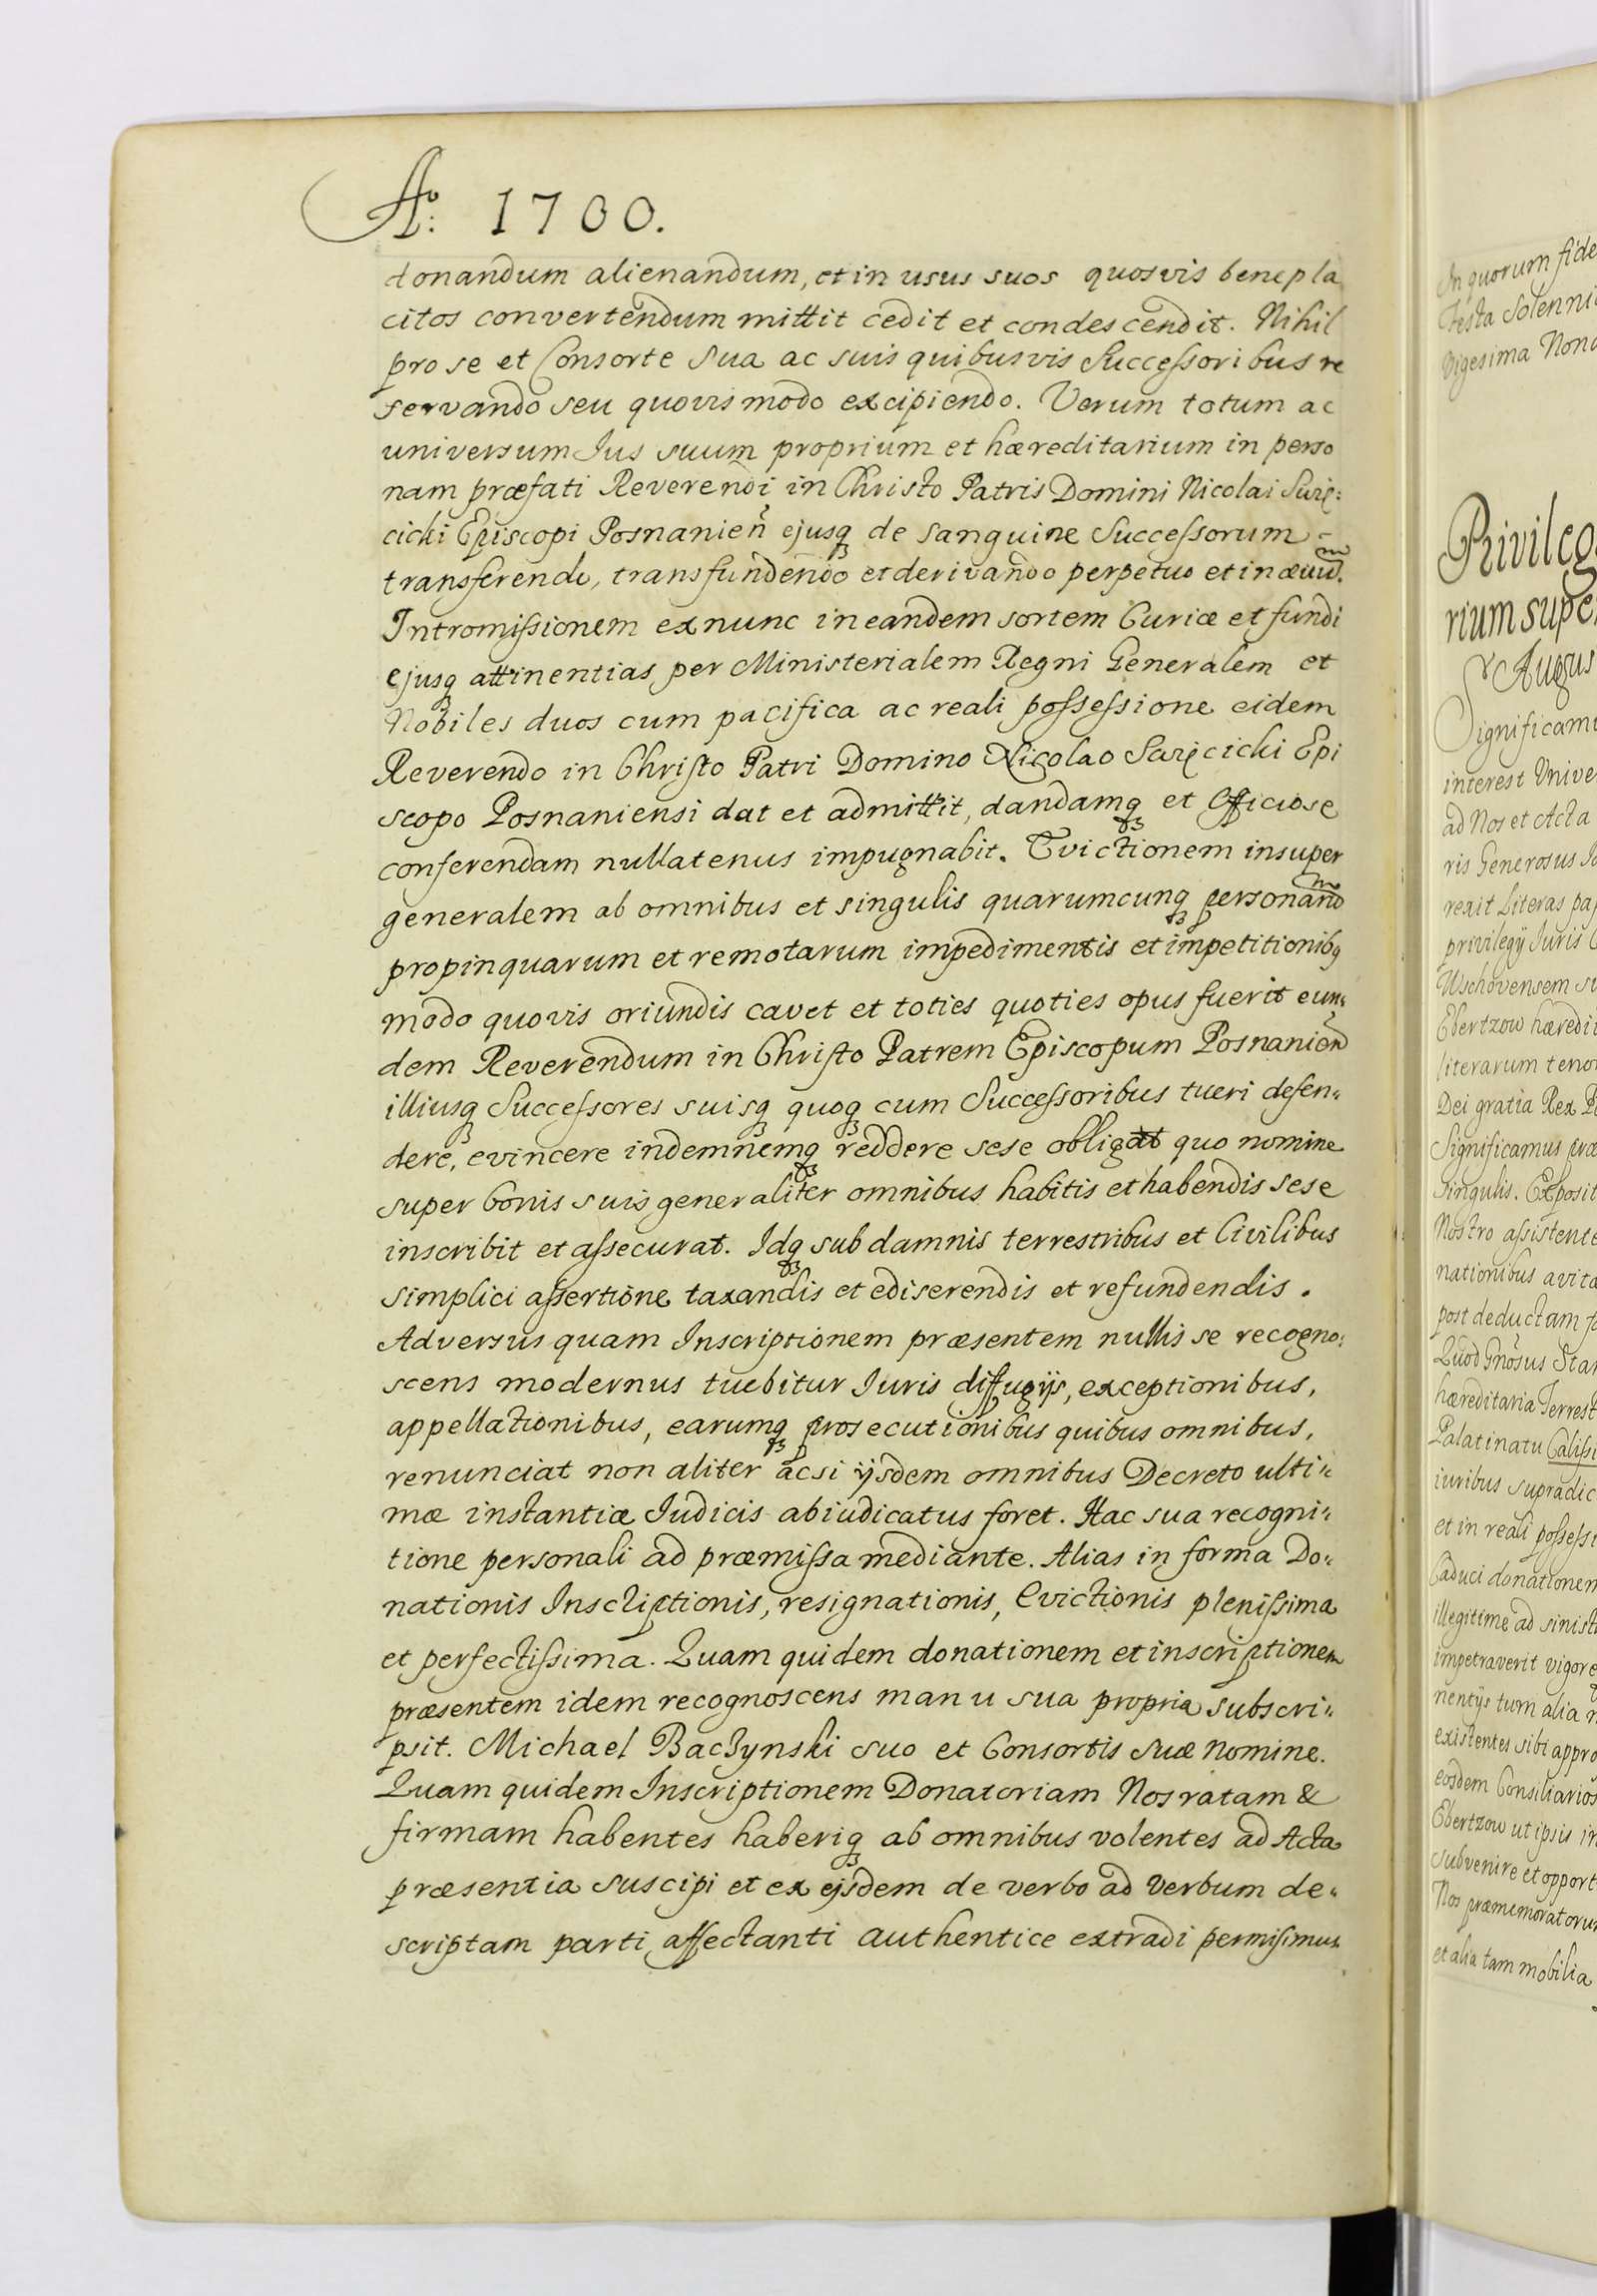 Aº: 1700.
donandum alienandum, et in usus suos quosvis benepla
citos convertendum mittit cedit et condescendit. Nihil
pro se et Consorte Sua ac suis quibusvis Successoribus re
servando seu quovis modo excipiendo. Verum totum ac
universum Jus suum proprium et hæreditarium in perso
nam præfati Reverendi in Christo Patris Domini Nicolai
cicki Episcopi Posnanien̄ ejusq de sanguine Successorum -
transferendo, transfundendo et derivando perpetuo et in ævum.
Intromissionem ex nunc in eandem sortem Curiæ et fundi
ejusq attinentias per Ministerialem Regni Generalem et
Nobiles duos cum pacifica ac reali possessione eidem
Reverendo in Christo Patri Domino Nicolao Epi
scopo Posnaniensi dat et admittit, dandamq et Officiose
conferendam nullatenus impugnabit. Evictionem insuper
generalem ab omnibus et singulis quarumcunq personarū
propinquarum et remotarum impedimentis et impetitionibq
modo quovis oriundis cavet et toties quoties opus fuerit eun„
dem Reverendum in Christo Patrem Episcopum Posnanien̄
illiusq Successores suisq quoq cum Successoribus tueri defen„
dere, evincere indemnemq reddere sese obligat quo nomine
super bonis suis generaliter omnibus habitis et habendis sese
inscribit et assecurat. Idq sub damnis terrestribus et Civilibus
simplici assertione taxandis et ediserendis et refundendis.
Adversus quam Inscriptionem præsentem nullis se recogno:
scens modernus tuebitur Iuris diffugijs, exceptionibus,
appellationibus, earumq prosecutionibus quibus omnibus,
renunciat non aliter acsi ijsdem omnibus Decreto ulti„
mæ instantiæ Iudicis abiudicatus foret. Hac sua recogni„
tione personali ad præmissa mediante. Alias in forma Do„
nationis Inscriptionis, resignationis, Evictionis plenissima
et perfectissima. Quam quidem donationem et inscriptionem
præsentem idem recognoscens manu sua propria subscri„
psit. Michael Baczynski suo et Consortis suæ Nomine.
Quam quidem Inscriptionem Donatoriam Nos ratam &
firmam habentes haberiq ab omnibus volentes ad Acta
præsentia suscipi et ex ejsdem de verbo ad verbum de„
scriptam parti affectanti authentice extradi permisimus.
In quorum fide
Testa Solenni
Vigesima Nona
Privileg
rium super
Augus
Significamu
interest Unive
ad Nos et Acta
ris Generosus
rexit Literas pa
privilegij Iuris
Wschovensem su
Ebertzow hæredi
literarum teno
Dei gratia Rex P
Significamus præ
singulis. Exposit
Nostro assistente
nationibus avita
post deductam
Quod Gnosus Star
hæreditaria Terrest
Palatinatu Calissi
iuribus supradic
et in reali possessi
Caduci donationem
illegitime ad sinist
impetraverit vigore
nentijs tum alia
existentes sibi appro
eosdem Consiliarios
Ebertzow ut ipsis in
subvenire et opport
Nos præmemoratoru
et alia tam mobilia